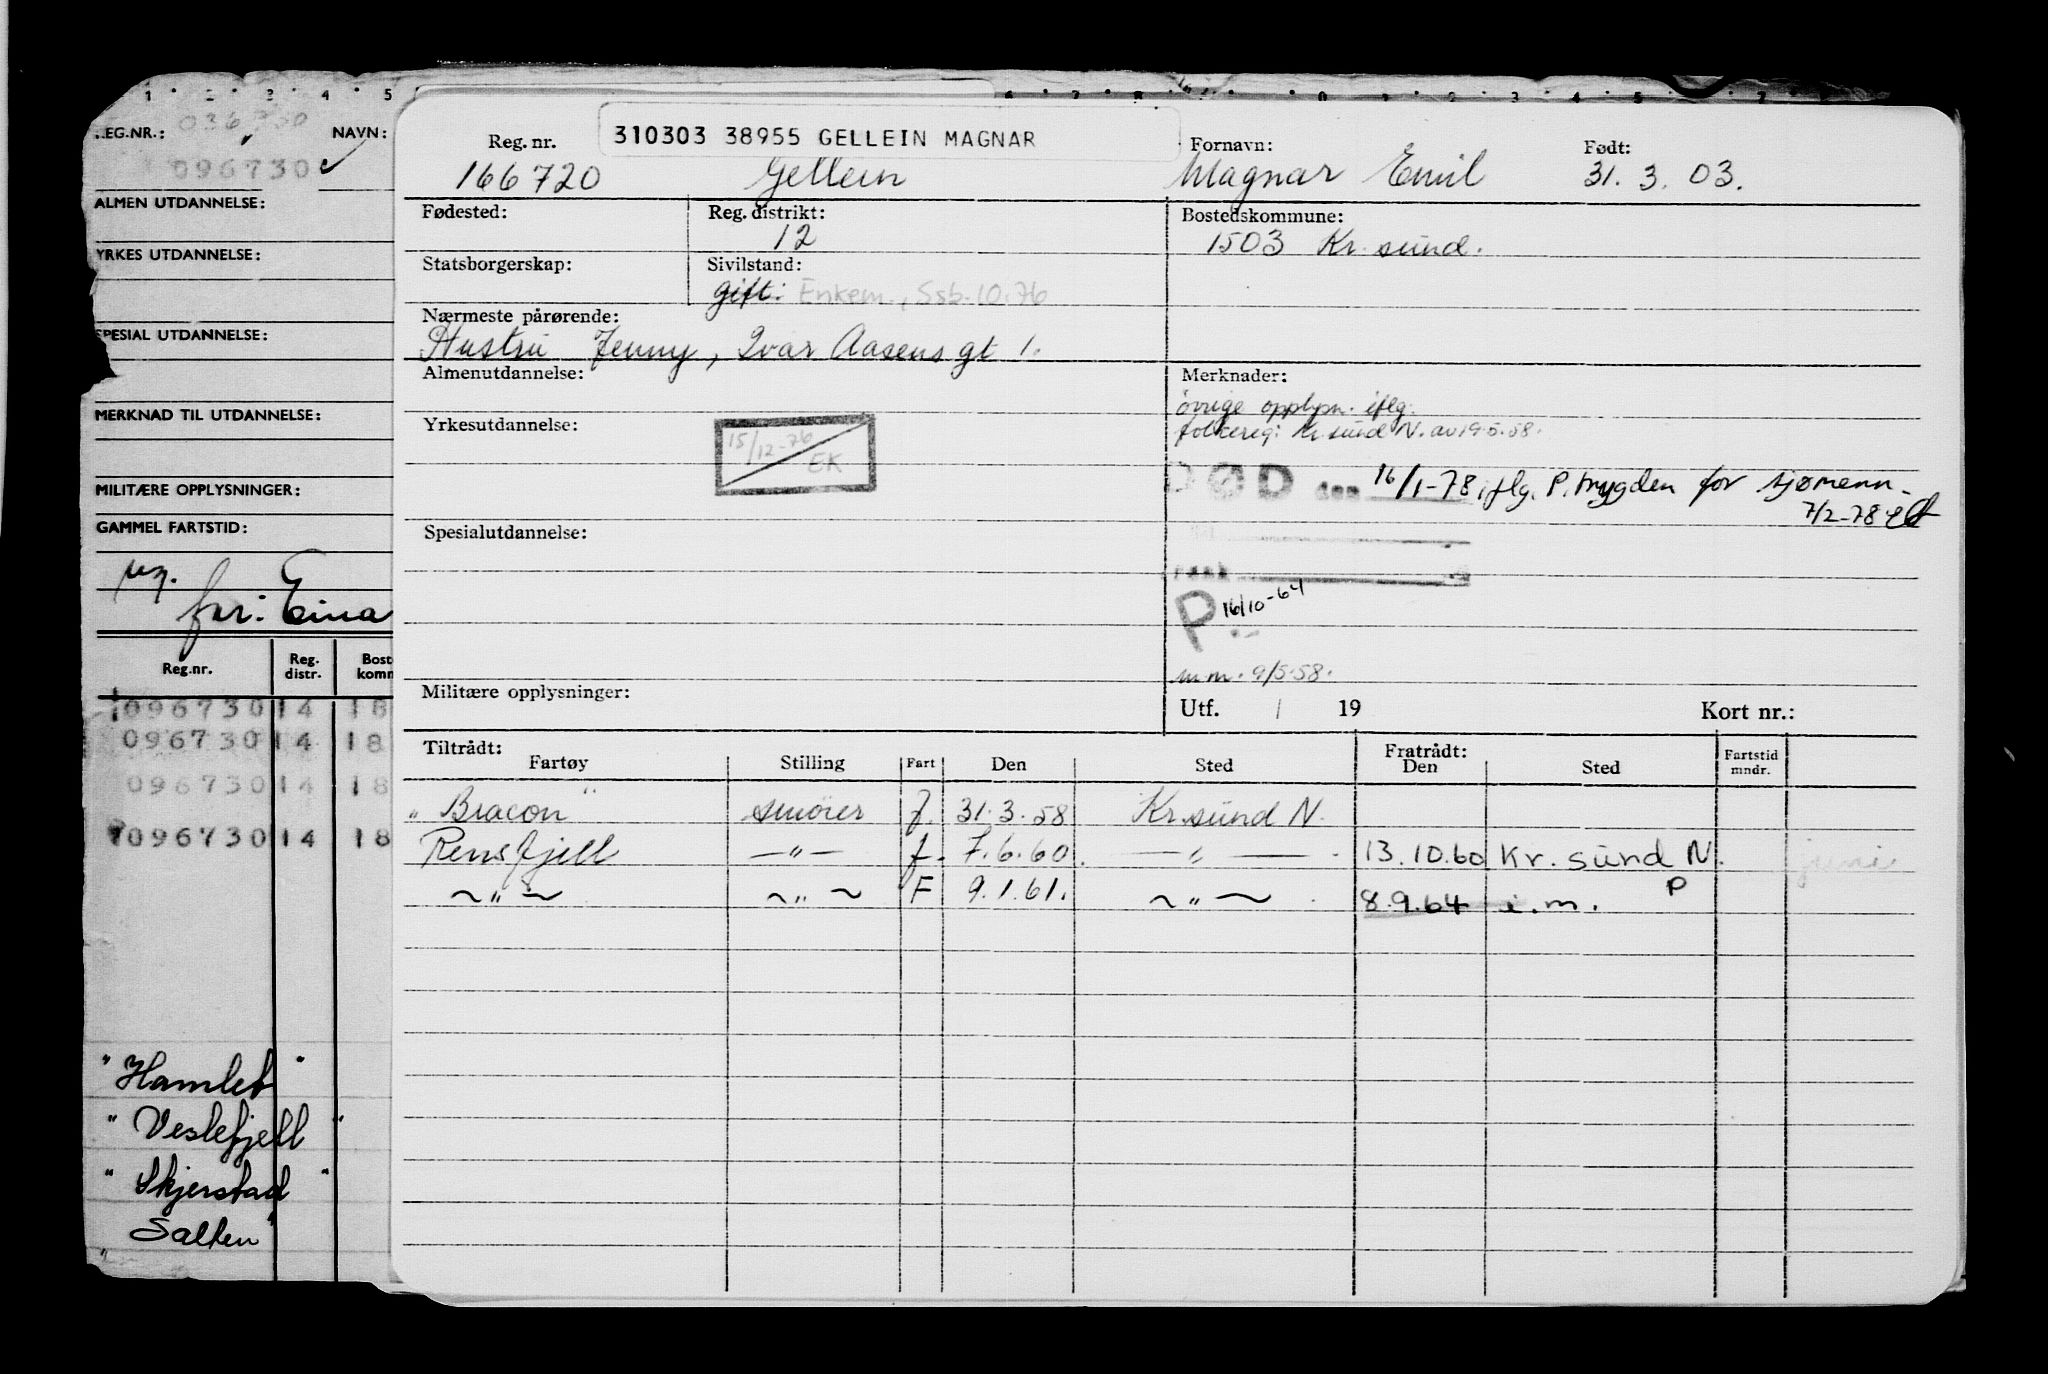 REG.NR.: 036730 NAVN:
096730
ALMEN UTDANNELSE:
YRKES UTDANNELSE:
SPESIAL UTDANNELSE:
MERKNAD TIL UTDANNELSE:
MILITÆRE OPPLYSNINGER:
GAMMEL FARTSTID:
far: Eina
Reg.nr. Reg. distr. Bost komm
096730 14 18
096730 14 18
096730 14 18
096730 14 18
"Hamlet"
"Veslefjell"
"Skjerstad"
"Salten"
310303 38955 GELLEIN MAGNAR
Reg. nr. Fornavn: Født:
166720 Gellein Magnar Emil 31.3.03.
Fødested: Reg. distrikt: Bostedskommune:
12 1503 Kr.sund.
Statsborgerskap: Sivilstand:
gift: Enkem., Ssb. 10.76
Nærmeste pårørende:
Hustru Jenny, Ivar Aasens gt 1.
Almenutdannelse: Merknader:
øvrige opplysn. iflg.
Yrkesutdannelse: folkereg: Kr.sund N. av 19.5.58.
15/12-76
EK
DØD den 16/1-78 iflg. P.trygden for sjømenn-
7/2-78
Spesialutdannelse:
P 16/10-64
m.m. 9/5-58.
Militære opplysninger:
Utf. / 19 Kort nr.:
Tiltrådt: Fratrådt:
Fartøy Stilling Fart Den Sted Den Sted Fartstid mndr.
"Bracon" smører f. 31.3.58 Kr.sund N.
Rensfjell —"— f. 7.6.60. —"— 13.10.60 Kr.sund N. juni
~"~ ~"~ F 9.1.61. ~"~ 8.9.64 i.m. P